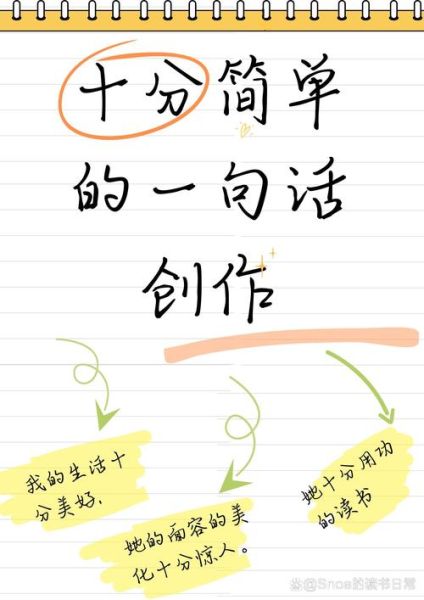 十分简单
的一句话
创作
我的生活十
分美好，
她的面容的美
化十分惊人。
她十分用功
的读书
@Snoa的读书日常